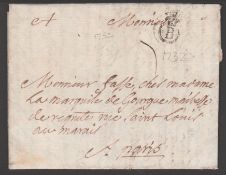 A Monsieur
B
1732
Monsieur fasse, ches madame
La marquise de
de requête, rüe saint Louis
au marais
A paris